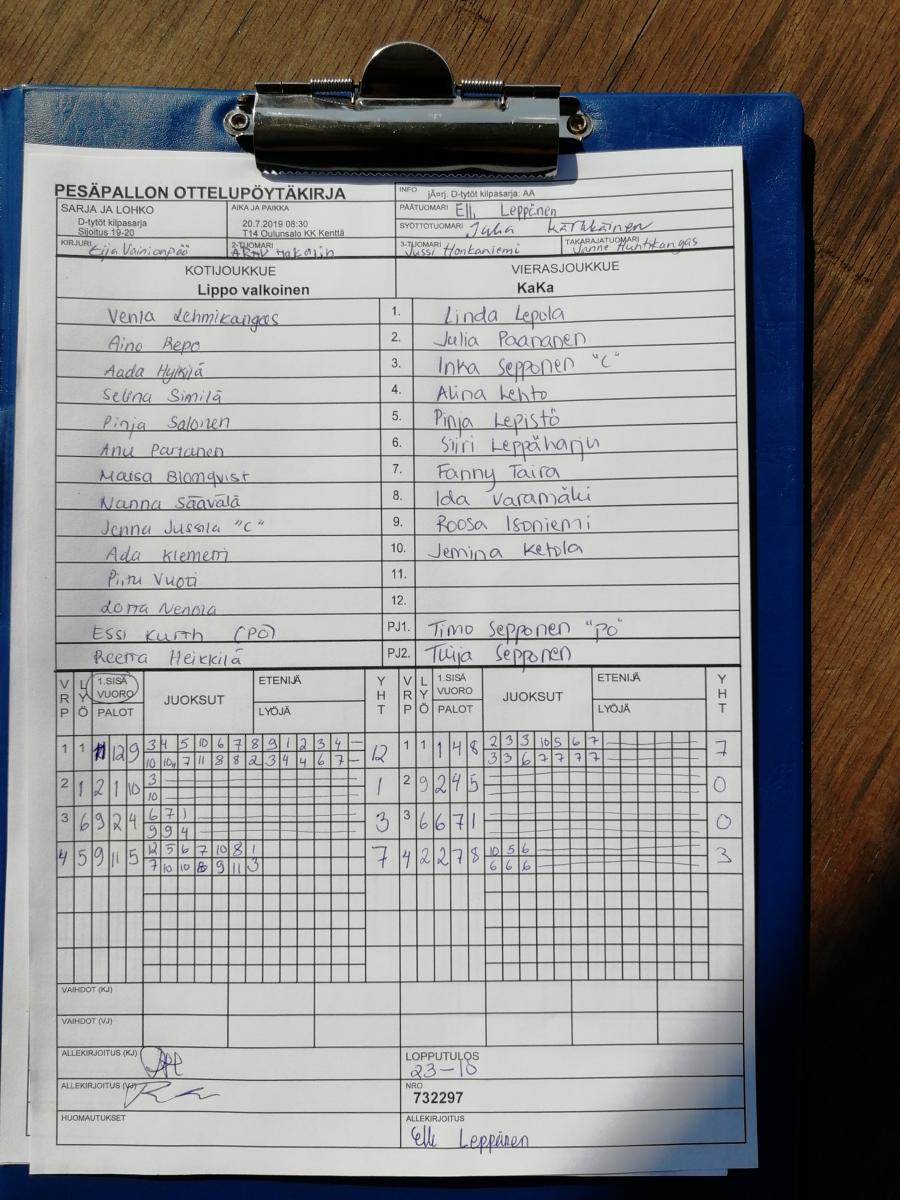 PESÄPALLON OTTELUPÖYTÄKIRJA
INFO jÃ¤rj. D-tytöt kilpasarja: AA
SARJA JA LOHKO
D-tytöt kilpasarja
Sijoitus 19-20
AIKA JA PAIKKA
20.7.2019 08:30
T14 Oulunsalo KK Kenttä
PÄÄTUOMARI Elli Leppänen
SYÖTTÖTUOMARI Julia Kärkkäinen
KIRJURI Eija Vainionpää
2-TUOMARI
3-TUOMARI Jussi Honkaniemi
TAKARAJATUOMARI Janne Huhtikangas
KOTIJOUKKUE
Lippo valkoinen
VIERASJOUKKUE
KaKa
Venla Lehmikangas 1. Linda Lepola
Aino Repo 2. Julia Paananen
Aada Hyrkjä 3. Inka Sepponen "C"
Selina Similä 4. Alina Lehto
Pinja Salonen 5. Pinja Lepistö
Anu Partanen 6. Siiri Leppäharju
Maisa Blomqvist 7. Fanny Taira
Nanna Säävälä 8. Ida Varamäki
Jenna Jussila "C" 9. Roosa Isoniemi
Ada Klemetti 10. Jemina Ketola
Piitu Vuoti 11.
Lotta Nenola 12.
Essi Kurth (PO) PJ1. Timo Sepponen "PO"
Reetta Heikkilä PJ2. Tuija Sepponen
VRP LYÖ 1.SISÄ VUORO PALOT JUOKSUT ETENIJÄ LYÖJÄ YHT VRP LYÖ 1.SISÄ VUORO PALOT JUOKSUT ETENIJÄ LYÖJÄ YHT
1 1 11 12 9 3 4 5 10 6 7 8 9 1 2 3 4 12 1 1 1 4 8 2 3 3 10 5 6 7 7
10 10 7 11 8 8 2 3 4 4 6 7 3 3 6 7 7 7 7
2 1 2 1 10 3 1 2 9 2 4 5 0
10
3 6 9 2 4 6 7 1 3 3 6 6 7 1 0
9 9 4
4 5 9 11 5 12 5 6 7 10 8 1 7 4 2 2 7 8 10 5 6 3
7 10 10 8 9 11 3 6 6 6
VAIHDOT (KJ)
VAIHDOT (VJ)
ALLEKIRJOITUS (KJ)
LOPPUTULOS
23-10
ALLEKIRJOITUS (VJ)
NRO
732297
HUOMAUTUKSET
ALLEKIRJOITUS
Elli Leppänen